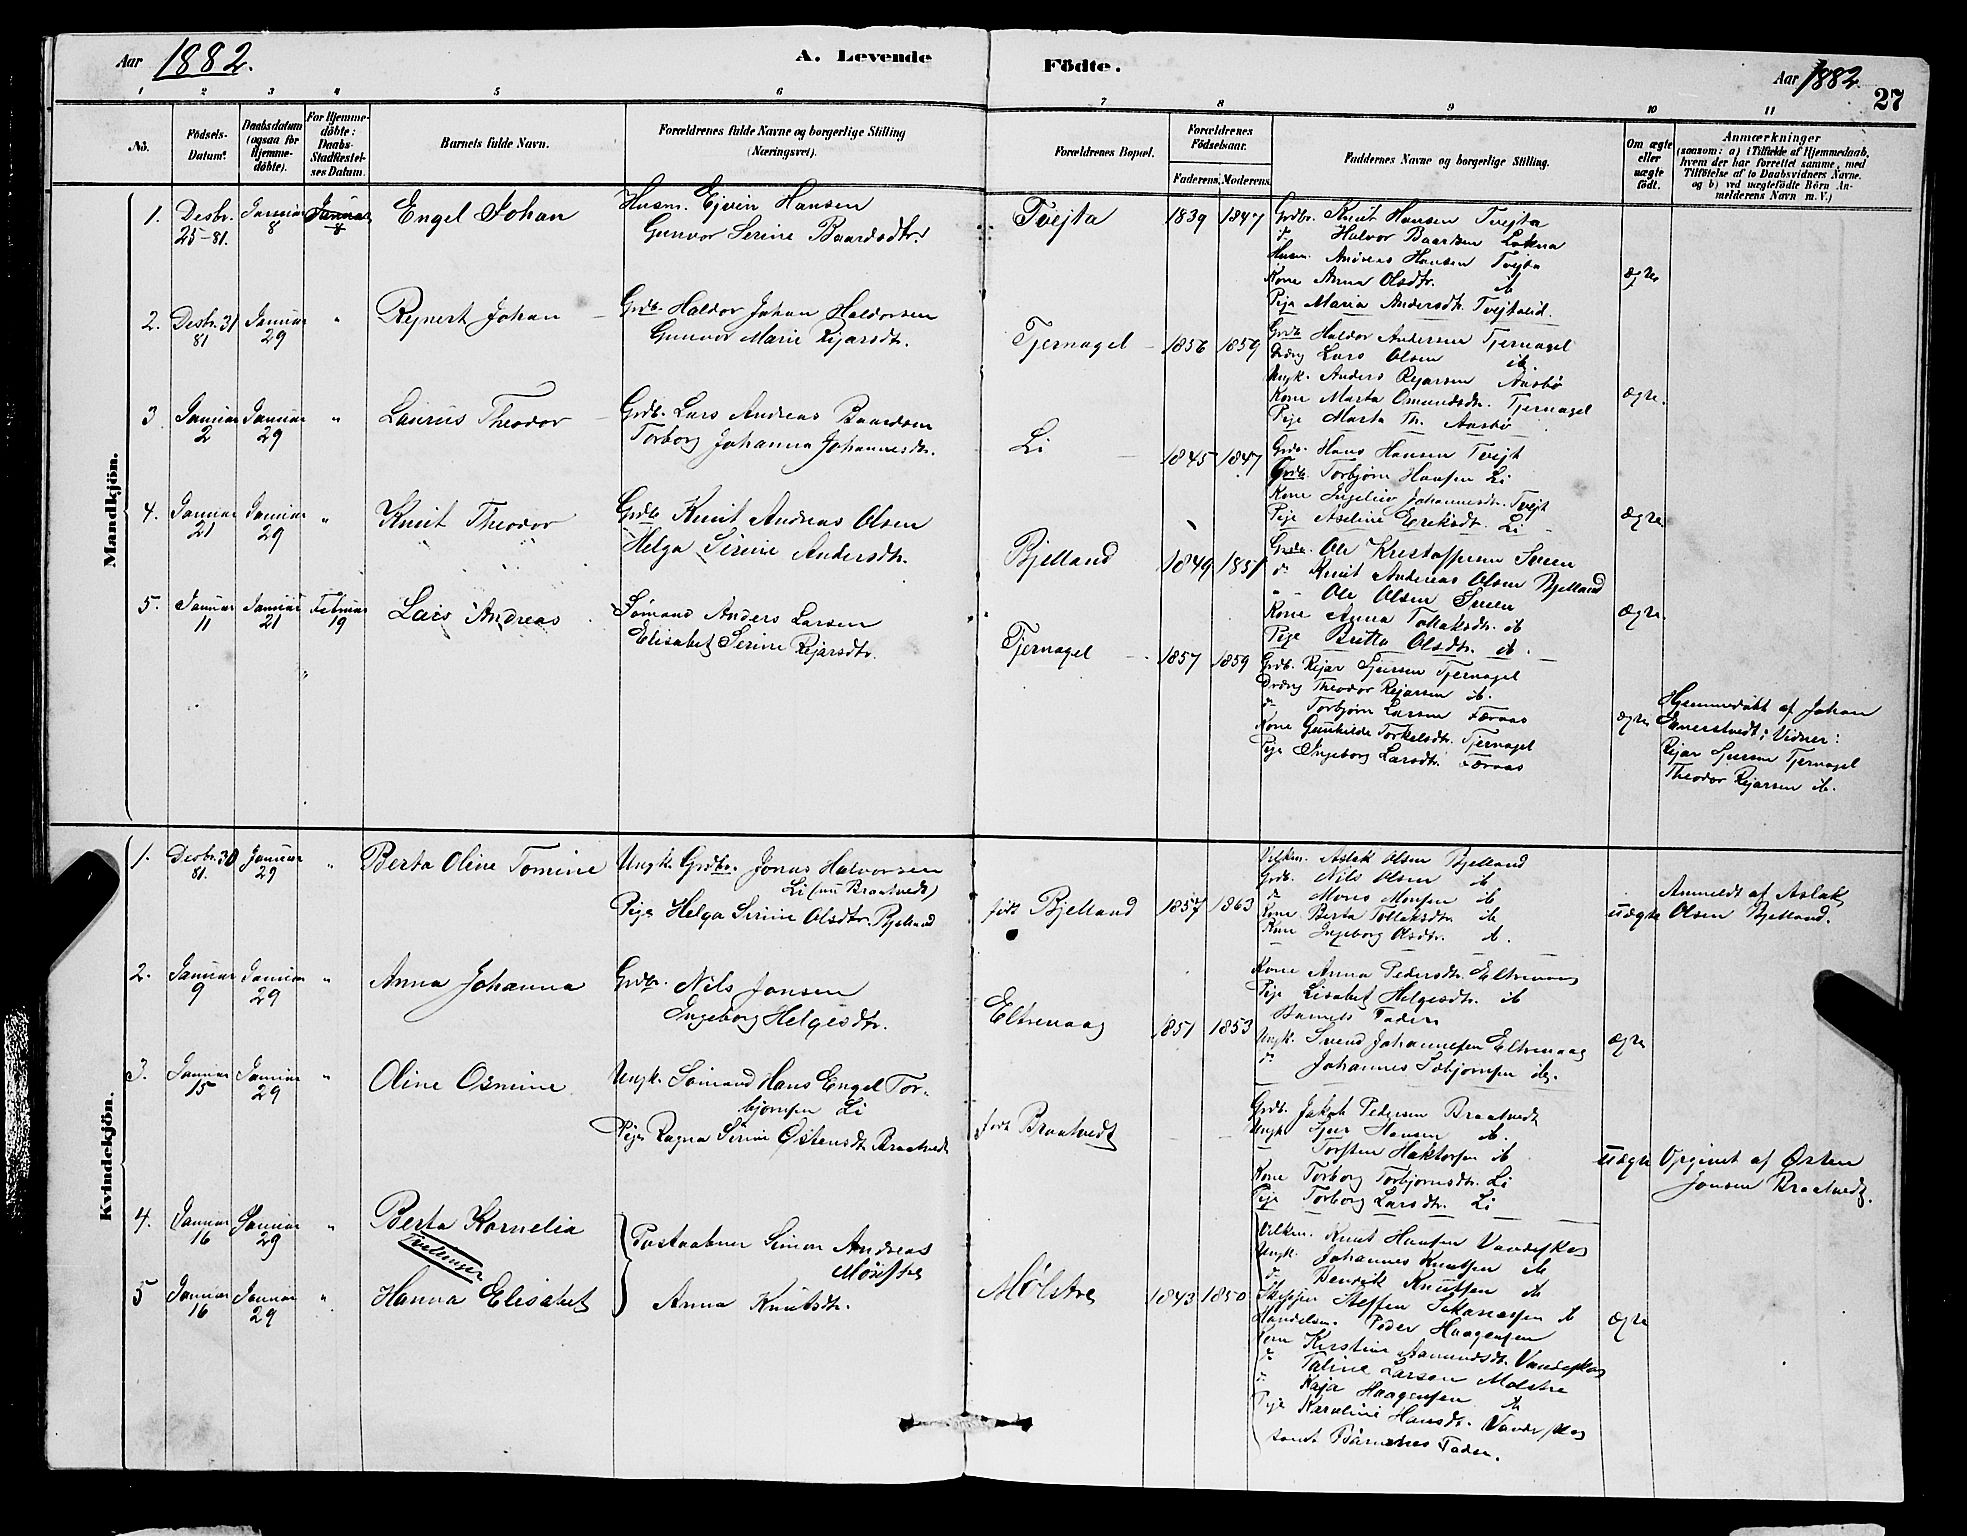 Aar 1882.
A. Levende
Födte.
Aar 1882
27
1 2 3 4 5 6 7 8 9 10 11
No.
Födsels-Datum.
Daabsdatum (ogsaa for Hjemmedöbte).
For Hjemmedöbte: Daabs-Stadfæstelses Datum.
Barnets fulde Navn.
Forældrenes fulde Navne og borgerlige Stilling (Næringsvei).
Forældrenes Bopæl.
Forældrenes Födselsaar.
Faderens. Moderens.
Faddernes Navne og borgerlige Stilling.
Om ægte eller uægte födt.
Anmærkninger
(saasom: a) i Tilfælde af Hjemmedaab, hvem der har forrettet samme, med Tilföielse af to Daabsvidners Navne, og b) ved uægtefödte Börn Anmelderens Navn m. V.)
Mandkjön.
1. Desbr. 25-81. Januar 8 Januar 8 Engel Johan
Husm. Ejvin Hansen
Gunvor Serine Baardsdtr.
Tvejta 1839 1847
Grdbr. Knut Hansen Tvejta
do Halvor Baardsen Lokna
Husm. Andreas Hansen Tvejta
Kone Anna Olsdtr. ib
Pige Maria Andersdtr. Tvejteid.
ægte
2. Desbr. 31 81 Januar 29 " Rejnert Johan
Grdb. Haldor Johan Haldorsen
Gunvor Marie Rejarsdtr.
Tjernagel 1856 1859
Grdb Haldor Andersen Tjernagel
Lars Olsen ib.
Ungk. Anders Rejarsen Aasbø
Kone Marta Omundsdtr. Tjernagel
Pige Marta Th. Aasbø
ægte.
3 Januar 2 Januar 29 " Laurus Theodor
Grdb. Lars Andreas Baardsen
Torborg Johanna Johannesdtr.
Li 1845 1847
Grdb. Hans Hansen Tvejt
Grdb. Torbjørn Hansen Li
Kone Ingeliv Johannesdtr. Tvejt
Pige Aseline Eriksdtr. Li
ægte
4. Januar 21 Januar 29 " Knut Theodor
Grdb Knut Andreas Olsen
Helga Serine Andersdtr.
Bjelland 1849 1851
Grdb. Ole Kristoffersen
do Knut Andreas Olsen Bjelland
" Ole Olsen
Kone Anna Tollaksdtr. ib
Pige Britta Olsdtr. ib.
ægte.
5. Januar 11 Januar 21 Februar 19 Lars Andreas
Sømand Anders Larsen
Elisabet Serine Rejarsdtr.
Tjernagel 1857 1859
Grdb. Rejar Sjursen Tjernagel
Theodor Rejarsen ib.
do Torbjørn Larsen Færaas
Kone Gunhilde Torkelsdtr. Tjernagel
Pige Ingeborg Larsdtr. Færaas
ægte
Hjemmedøbt af Johan
Vidner:
Rejar Sjursen Tjernagel
Theodor Rejarsen ib.
Kvindekjön.
1. Desbr. 30 81. Januar 29 " Berta Oline Tomine
Ungk. Grdbr. Jonas Halvorsen
Li (nu Braatvedt)
Pige Helga Serine Olsdtr. Bjelland
født Bjelland 1857 1863
Aslak Olsen Bjelland
Grdb. Nils Olsen ib
do Mons Monsen ib
Kone Berta Tollaksdtr. ib
Kone Ingeborg Olsdtr. ib.
uægte
Anmeldt af Aslak
Olsen Bjelland.
2. Januar 9 Januar 29 " Anna Johanna
Grdbr. Nils Jonsen
Ingeborg Helgesdtr.
Eltrevaag 1851 1853
Kone Anna Pedersdtr. Eltrevaag
Pige Lisabet Helgesdtr. ib
Barnets Fader
Ungk. Svend Johannesen Eltrevaag
do Johannes Torbjørnsen ib.
ægte
3. Januar 15 Januar 29 " Oline Osmine
Ungk. Sømand Hans Engel Tor-
bjørnsen Li
Pige Ragna Serine Østensdtr. Braatvedt
født Braatvedt
Grdb. Jakob Pedersen Braatvedt
Ungk Sjur Hansen ib.
Torsten Haktorsen ib
Kone Torborg Torbjørnsdtr. Li
Pige Torborg Larsdtr. Li
uægte
Opgivet af Østen
Jonsen Braatvedt.
4. Januar 16 Januar 29 " Berta Kornelia
Tvillinger
5 Januar 16 Januar 29 " Hanna Elisabet
Postaabner Simon Andreas
Anna Knutsdtr.
Mølstre 1843 1850
Knut Hansen Vandaskog
Ungk. Johannes Knutsen ib
do Henrik Knutsen ib
Steffen Zakariasen ib
Handelsm. Peder Haagensen
Kone Kirstine Aamundsdtr. Vandaskog
do Taline Larsen Mølstre
do Kaja Haagensen ib
Pige Karoline Hansdtr. Vandaskog
samt Børnenes Fader.
ægte